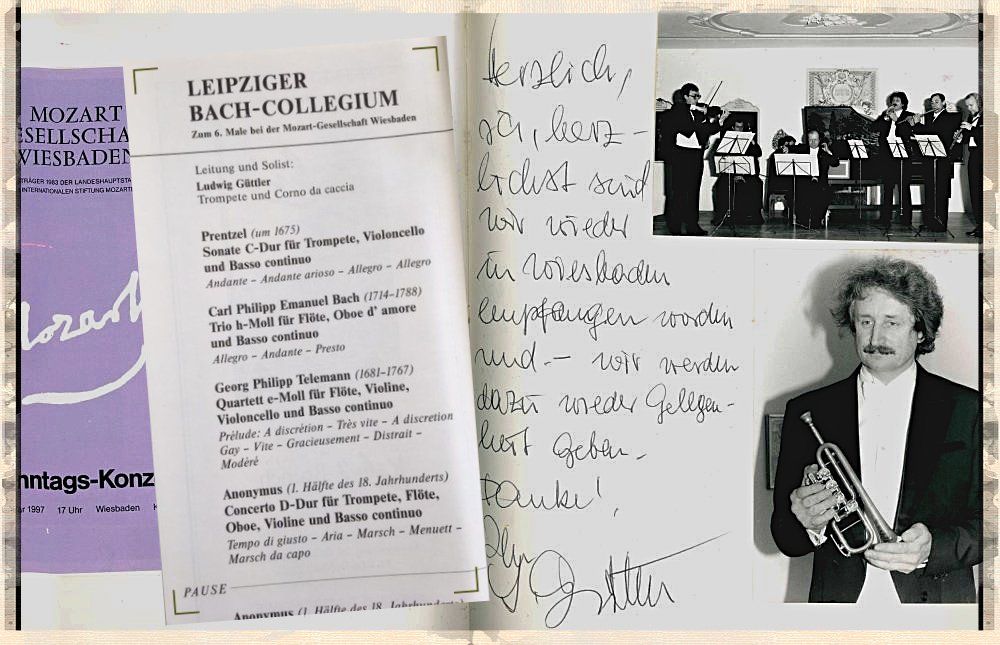 MOZART
ESELLSCHA
WIESBADEN
TRÄGER 1983 DER LANDESHAUPTSTA
INTERNATIONALEN STIFTUNG MOZART
Mozart
nntags-Konz
ar 1997 17 Uhr Wiesbaden K
LEIPZIGER
BACH-COLLEGIUM
Zum 6. Male bei der Mozart-Gesellschaft Wiesbaden
Leitung und Solist:
Ludwig Güttler
Trompete und Corno da caccia
Prentzel (um 1675)
Sonate C-Dur für Trompete, Violoncello
und Basso continuo
Andante – Andante arioso – Allegro – Allegro
Carl Philipp Emanuel Bach (1714–1788)
Trio h-Moll für Flöte, Oboe d' amore
und Basso continuo
Allegro – Andante – Presto
Georg Philipp Telemann (1681–1767)
Quartett e-Moll für Flöte, Violine,
Violoncello und Basso continuo
Prélude: A discrétion – Très vite – A discretion
Gay – Vite – Gracieusement – Distrait –
Modéré
Anonymus (1. Hälfte des 18. Jahrhunderts)
Concerto D-Dur für Trompete, Flöte,
Oboe, Violine und Basso continuo
Tempo di giusto – Aria – Marsch – Menuett –
Marsch da capo
PAUSE
Anonymus (1. Hälfte des 18. Jahrhunderts)
Herzlich,
ja, herz-
lichst sind
wir wieder
in Wiesbaden
empfangen worden
und – wir werden
dazu wieder Gelegen-
heit geben.
Danke!
Ihr
L. Güttler